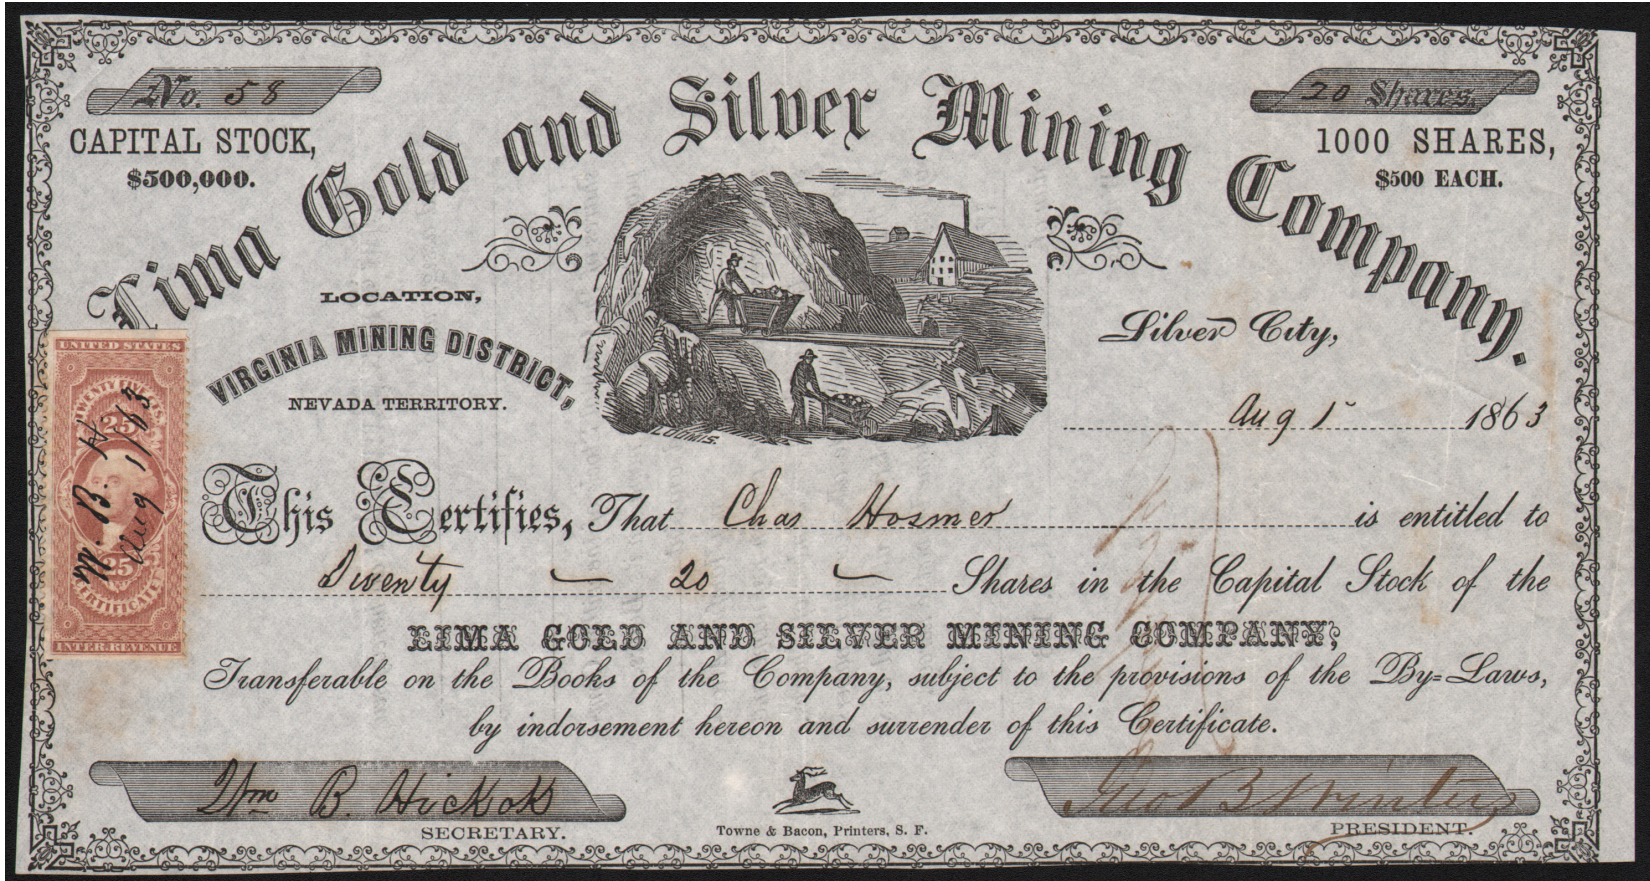 No. 58
20 Shares.
CAPITAL STOCK,
$500,000.
1000 SHARES,
$500 EACH.
Lima Gold and Silver Mining Company.
LOCATION,
VIRGINIA MINING DISTRICT,
NEVADA TERRITORY.
LOOMIS.
Silver City,
Aug 1 1863
UNITED STATES
TWENTY FIVE CENTS
25
W. B. H
Aug 1/63
25
CERTIFICATE
INTER. REVENUE
This Certifies, That Chas Hosmer is entitled to
Twenty — 20 — Shares in the Capital Stock of the
LIMA GOLD AND SILVER MINING COMPANY,
Transferable on the Books of the Company, subject to the provisions of the By=Laws,
by indorsement hereon and surrender of this Certificate.
Wm B. Hickok
SECRETARY.
Towne & Bacon, Printers, S. F.
B Winters
PRESIDENT.